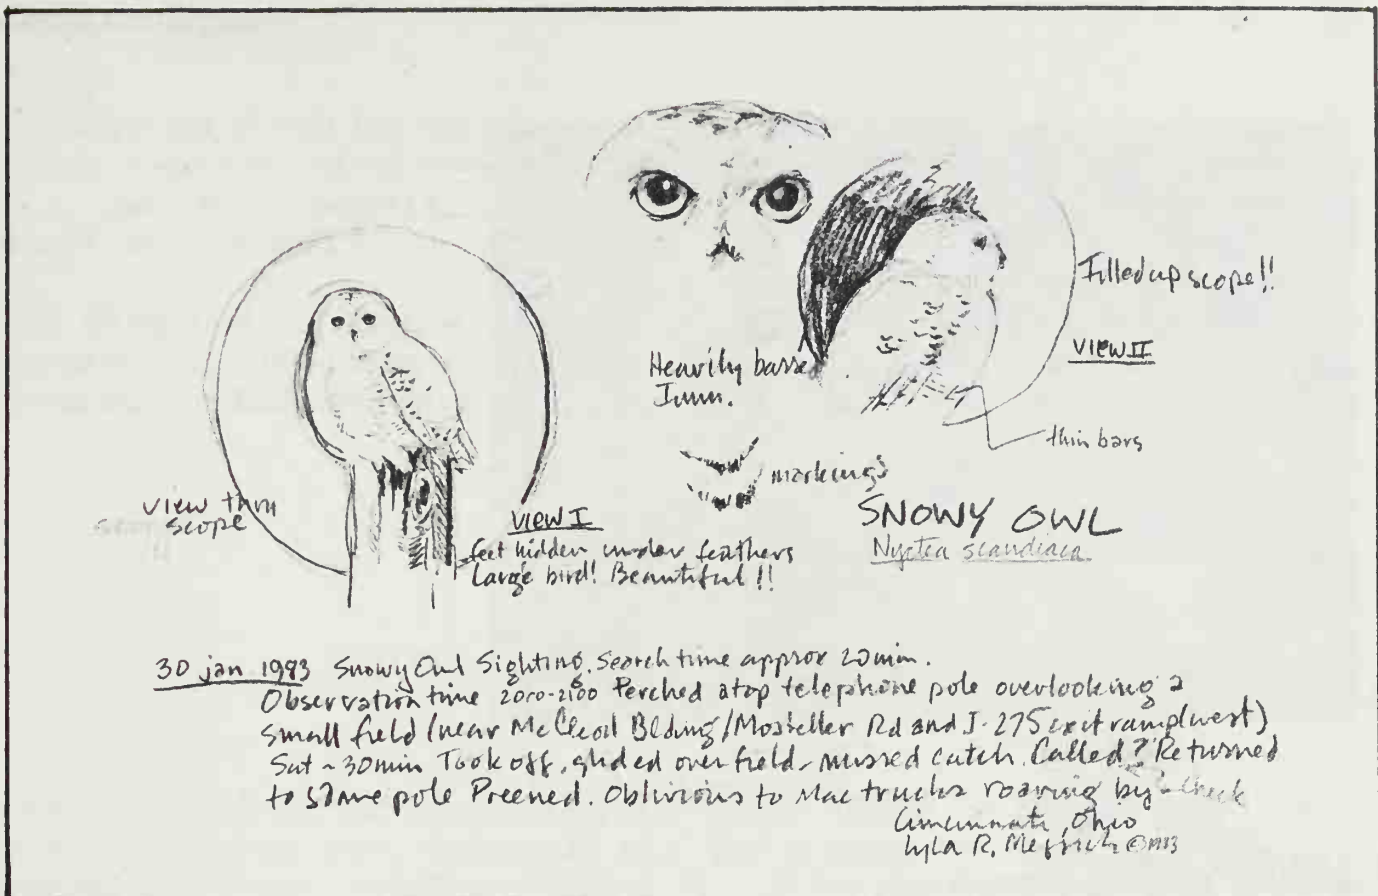 Filled up scope!!
VIEW II
Heavily barred
Imm.
thin bars
markings
view thru
scope
VIEW I
feet hidden under feathers
Large bird! Beautiful!!
SNOWY OWL
Nyctea scandiaca
30 jan 1983 Snowy Owl Sighting. Search time approx 20 min.
Observation time 2000-2100 Perched atop telephone pole overlooking a
small field (near McCleod Bldng/Mosteller Rd and I-275 exit ramp west)
Sat ~ 30 min Took off, glided over field - missed catch. Called? Returned
to same pole Preened. Oblivious to Mac trucks roaring by - check
Cincinnati, Ohio
Lyla R. ©1983